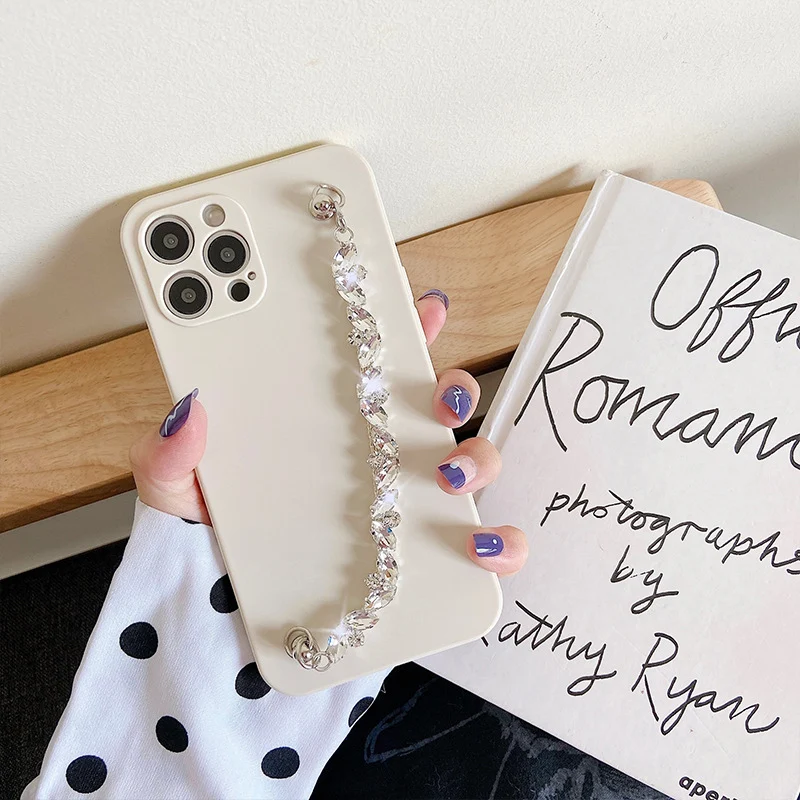 Offi
Romanc
photographs
by
Kathy Ryan
aper